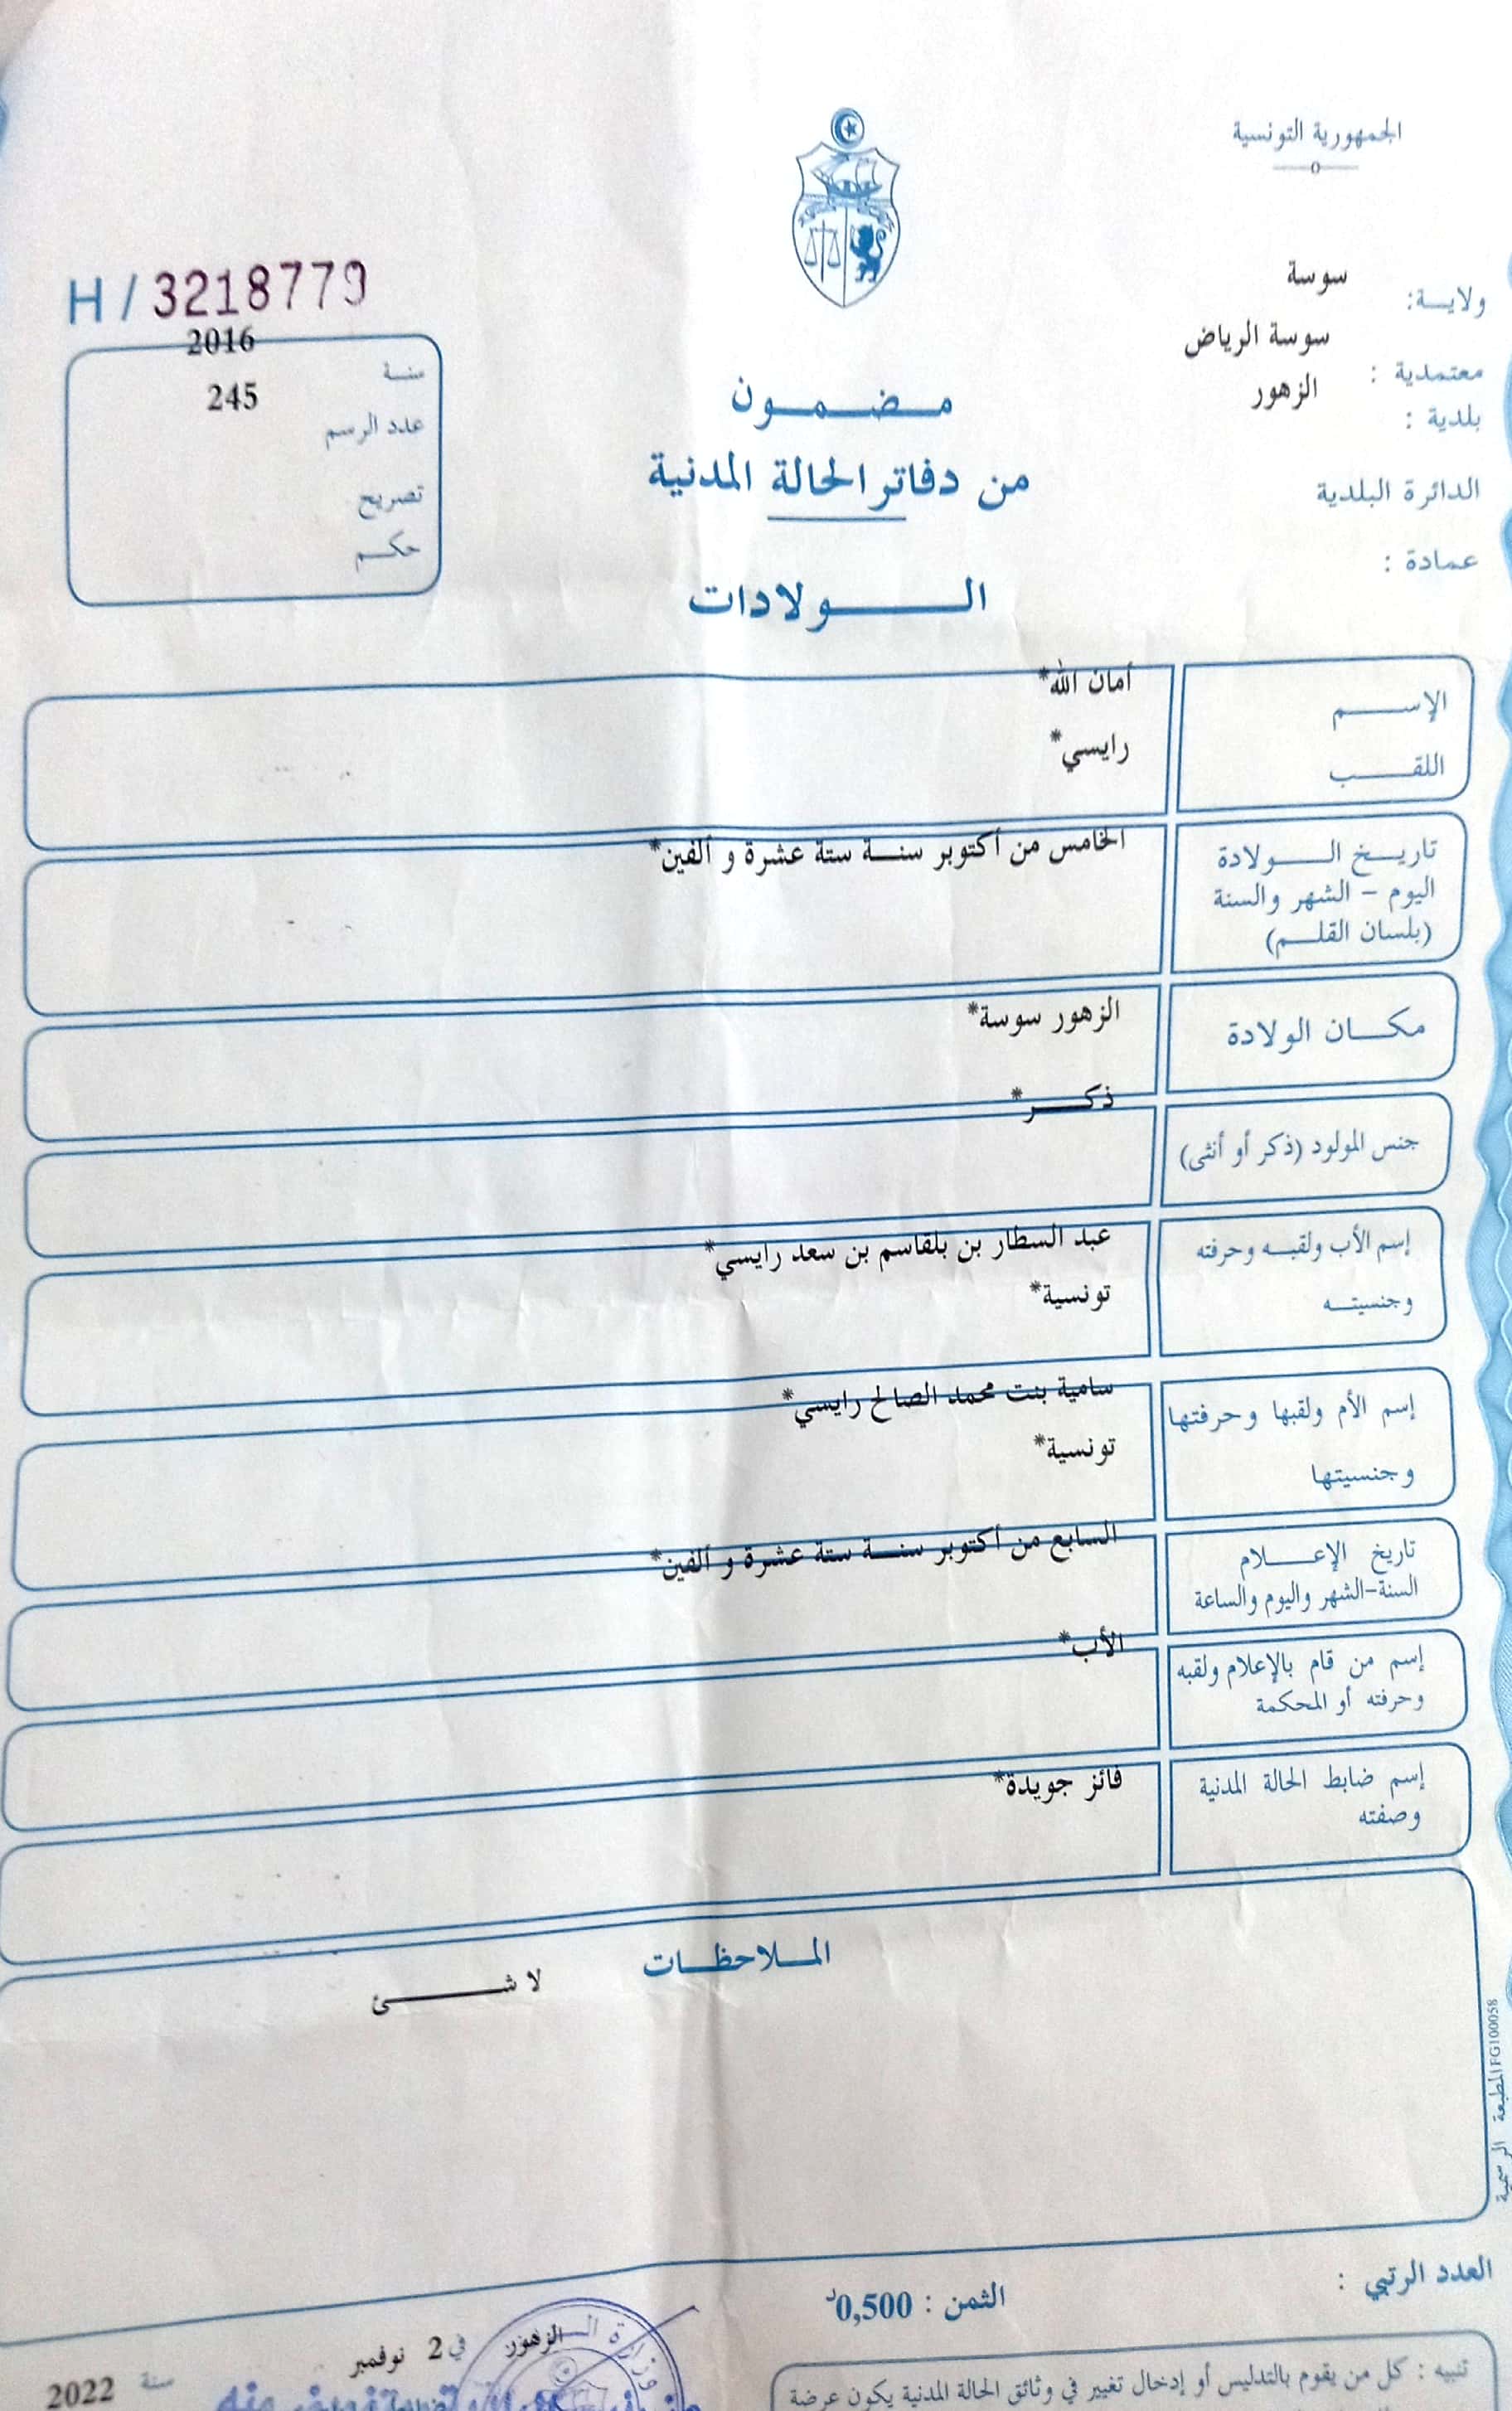 الجمهورية التونسية
ولايـــة: سوسة
معتمدية : سوسة الرياض
بلدية : الزهور
الدائرة البلدية
عمادة :
H / 3218779
سنــة 2016
عدد الرسم 245
تصريح
حكــم
مـــضـــمـــون
من دفاتر الحالة المدنية
الـــــولادات
الإســــــم أمان الله*
اللقــــب رايسي*
تاريـــخ الـــــولادة الخامس من أكتوبر سنـــة ستة عشرة و ألفين*
اليوم - الشهر والسنة
(بلسان القلـــم)
مكـــان الولادة الزهور سوسة*
جنس المولود (ذكر أو أنثى) ذكـــر*
إسم الأب ولقبــه وحرفته عبد السطار بن بلقاسم بن سعد رايسي*
وجنسيتــه تونسية*
إسم الأم ولقبها وحرفتها سامية بنت محمد الصالح رايسي*
وجنسيتها تونسية*
تاريخ الإعـــلام السابع من أكتوبر سنـــة ستة عشرة و ألفين*
السنة-الشهر واليوم والساعة
إسم من قام بالإعلام ولقبه الأب*
وحرفته أو المحكمة
إسم ضابط الحالة المدنية فائز جويدة*
وصفته
الملاحظــات
لا شـــــئ
المطبعة الرسمية FG100058
العدد الرتبي :
الثمن : 0,500د
الزهور في 2 نوفمبر سنة 2022
وزارة
تنبيه : كل من يقوم بالتدليس أو إدخال تغيير في وثائق الحالة المدنية يكون عرضة